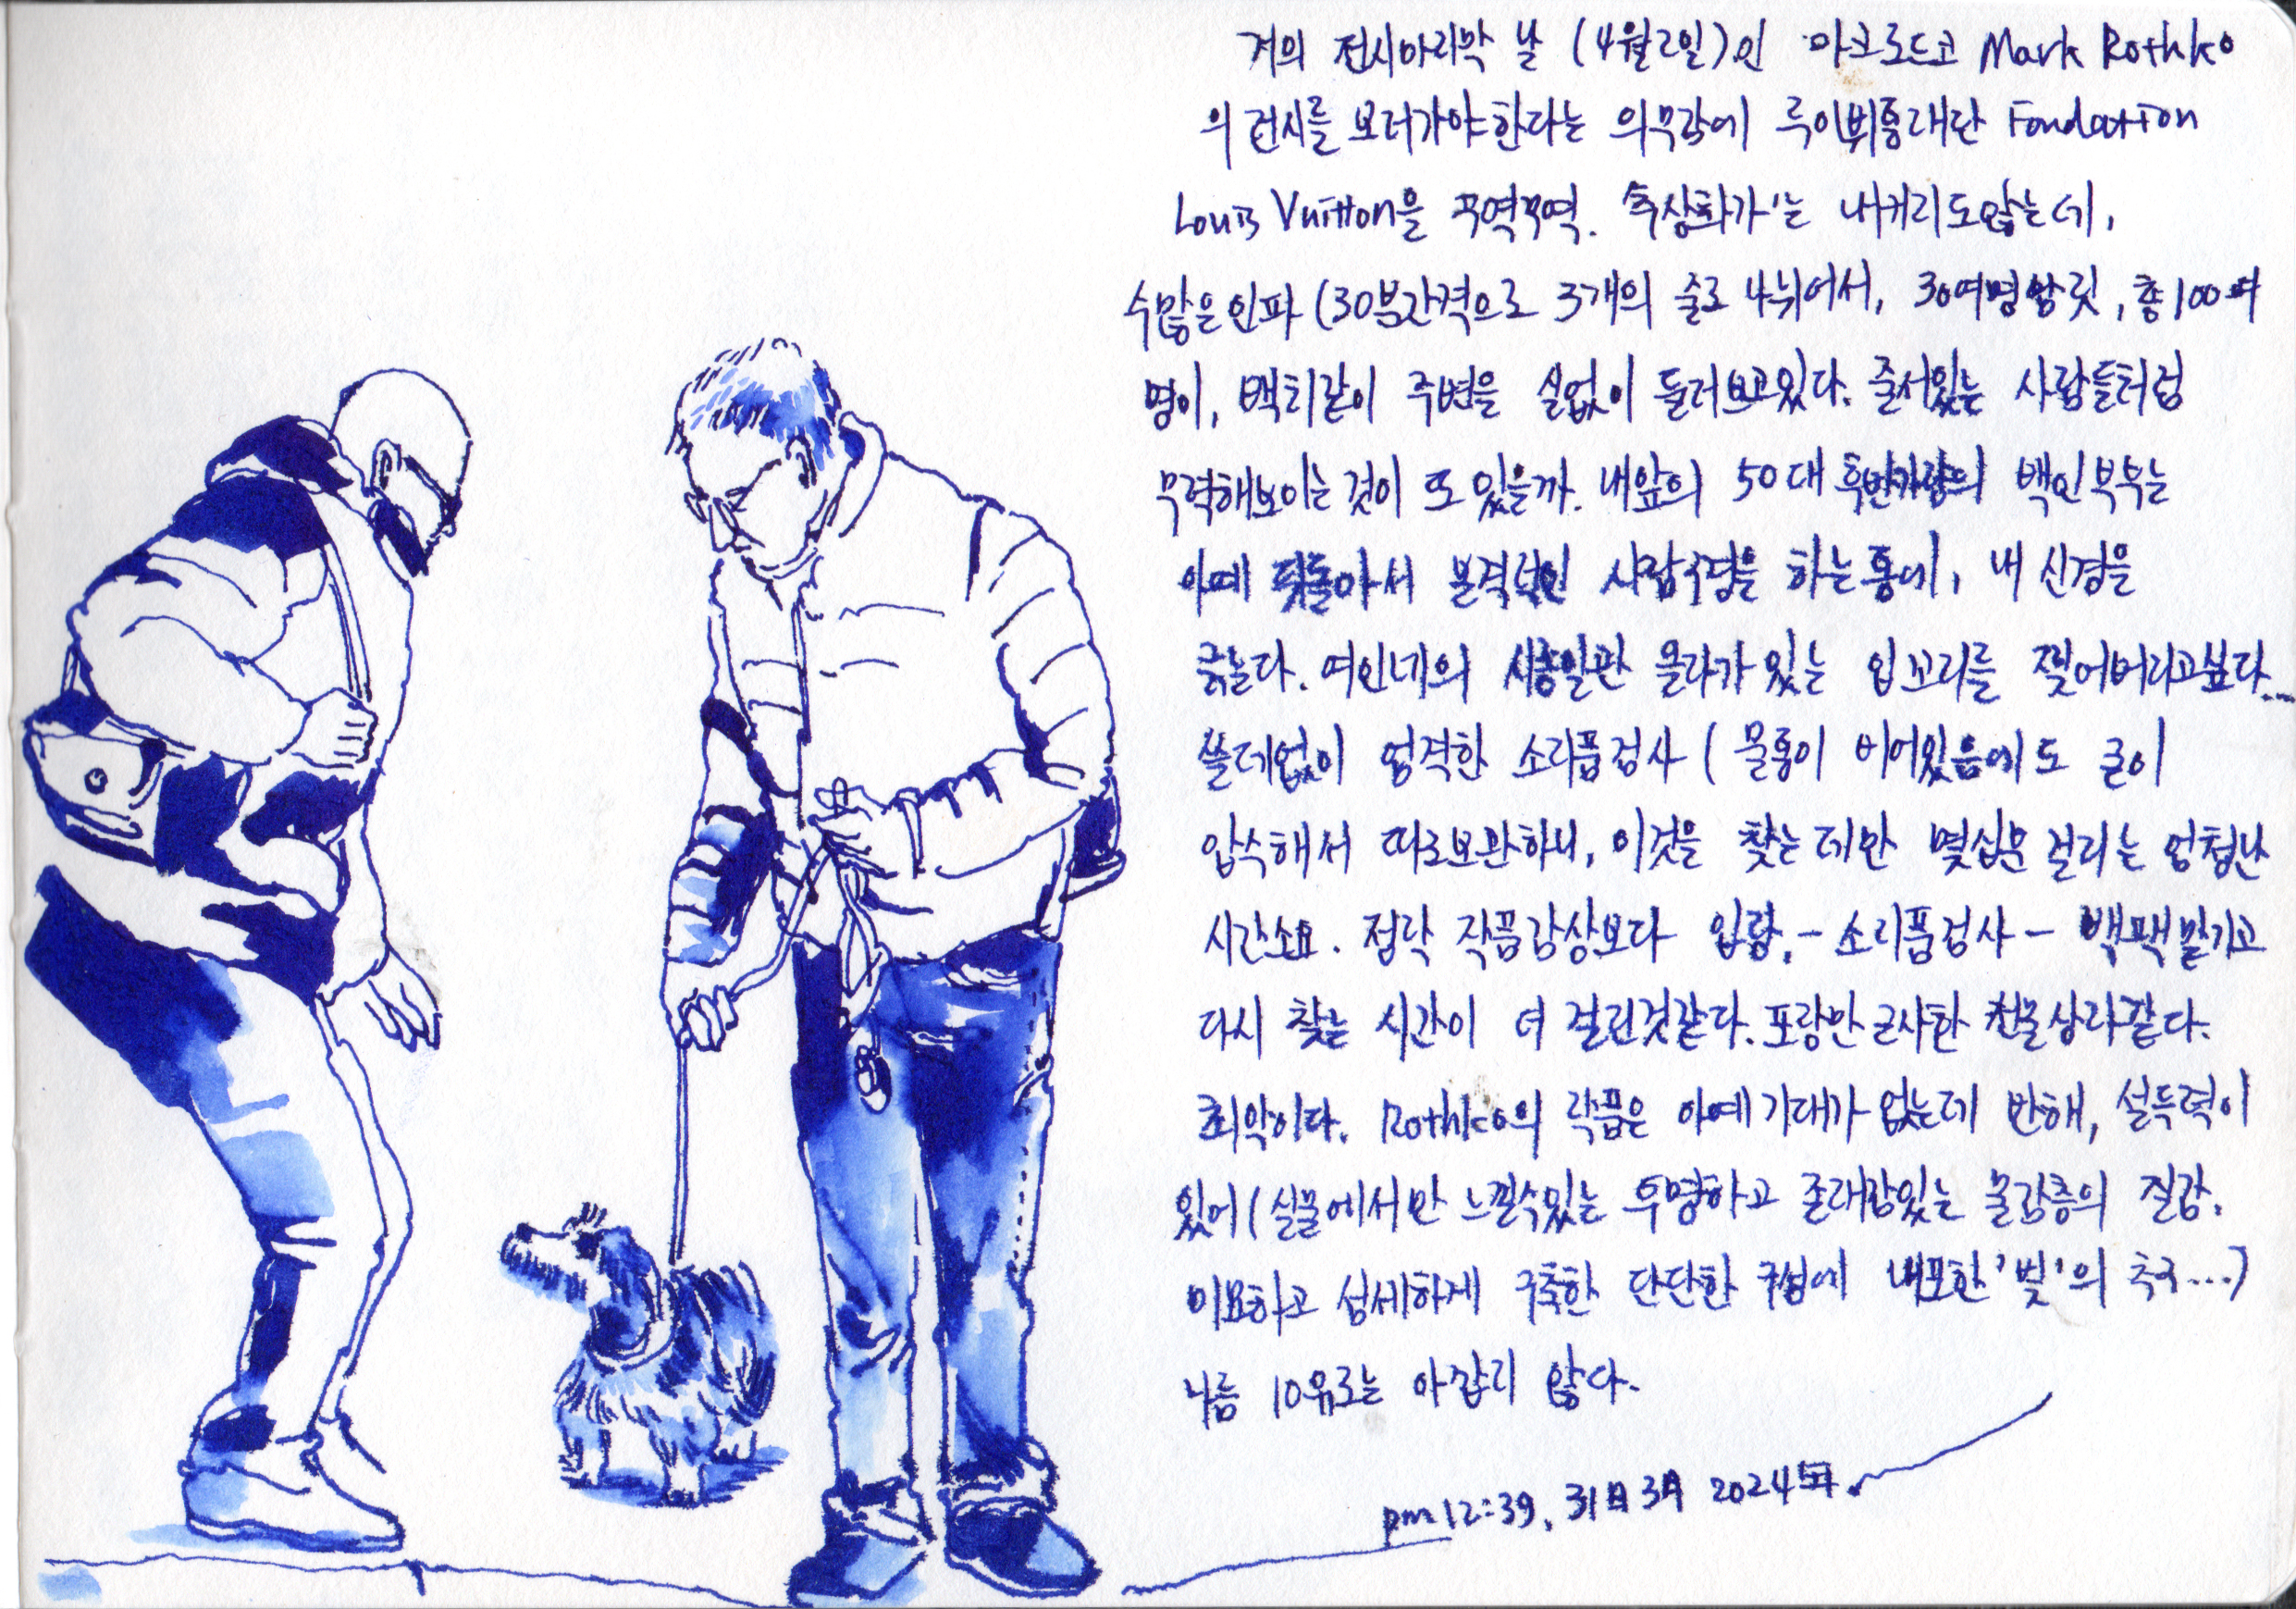 거의 전시마지막 날 (4월2일)인 마크로드코 Mark Rothko
의 전시를 보러가야한다는 의무감에 루이뷔통재단 Fondation
Louis Vuitton을 꾸역꾸역. 추상화가'는 내키지도않는데,
수많은인파 (30분간격으로 3개의 줄로 나뉘어서, 30여명씩, 총100여
명이, 백치같이 주변을 실없이 둘러보고있다. 줄서있는 사람들처럼
무력해보이는 것이 또 있을까. 내앞의 50대 후반가량의 백인부부는
아예 뒤돌아서 본격적인 사람구경을 하는통에, 내 신경을
긁는다. 여인네의 시종일관 올라가있는 입꼬리를 찢어버리고싶다...
쓸데없이 엄격한 소지품검사 ( 물통이 비어있음에도 굳이
압수해서 따로보관하니, 이것을 찾는데만 몇십분 걸리는 엄청난
시간소요. 정작 작품감상보다 입장,-소지품검사-백팩맡기고
다시 찾는 시간이 더 걸린것같다. 포장만 근사한 선물상자같다.
최악이다. Rothko의 작품은 아예 기대가 없는데 반해, 설득력이
있어 (실물에서만 느낄수있는 투명하고 존재감있는 물감층의 질감.
미묘하고 섬세하게 구축한 단단한 구성에 내포한 '빛'의 추구...)
나름 10유로는 아깝지 않다.
pm12:39, 31日 3月 2024年.